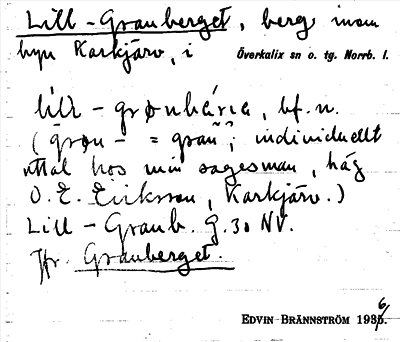 Lill-Granberget, berg inom
byn Karkjärv, i Överkalix sn o. tg. Norrb. l.
lill-grønbária, bf. n.
(grøn- = gran; individuellt
uttal hos min sagesman, häg
O. E. Eriksson, Karkjärv.)
Lill-Granb. G. 30 NV.
Jfr. Granberget.
EDVIN BRÄNNSTRÖM 1936.